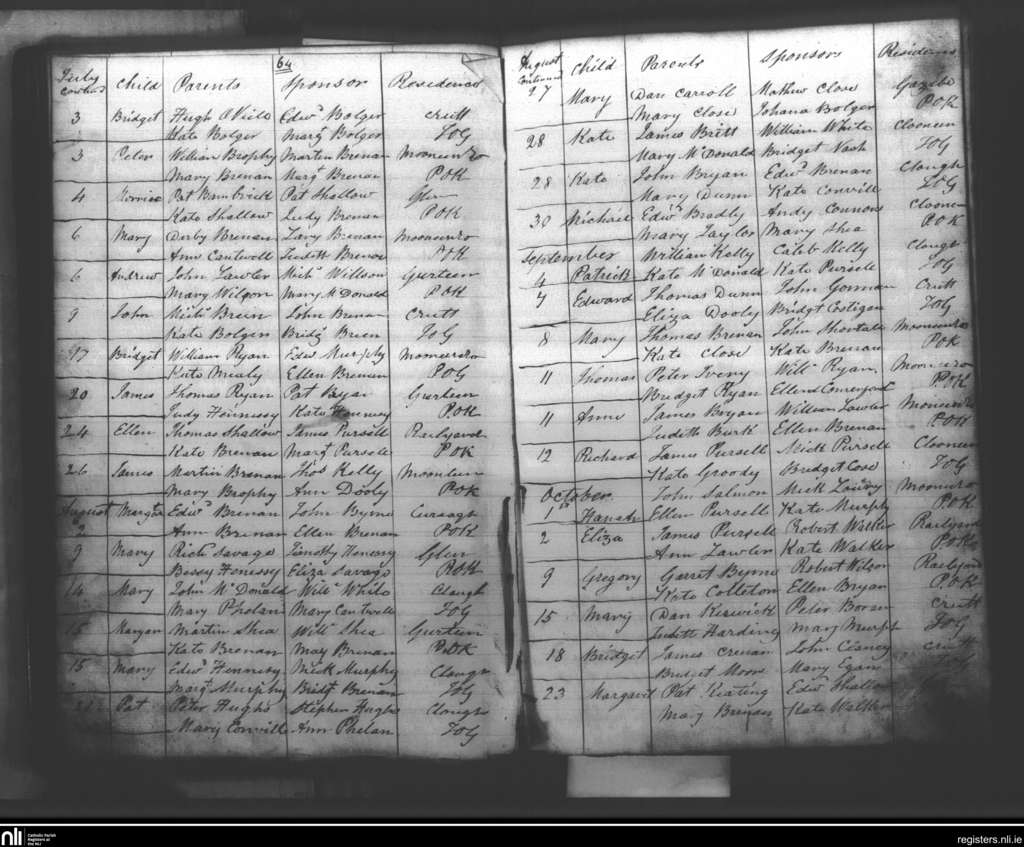 64
July Contnud Child Parents Sponsor Residence
3 Bridget Hugh Edwd Bolger Crutt
Kate Bolger Margt Bolger JOG
3 Peter William Brophy Martin Brenan Mooneenroe
Mary Brenan Margt Brenan POK
4 Pat Bambrick Pat Shallow Glen
Kate Shallow Judy Brenan POK
6 Mary Derby Brenan Lary Brenan
Ann Cantwell Judith Brenan POK
6 Andrew John Lawler Michl Willson Gurteen
Mary Wilson Mary McDonald POK
9 John Michl Breen John Brenan Crutt
Kate Bolger Bridgt Breen JOG
17 Bridget William Ryan Edwd Murphy
Kate Mealy Ellen Brenan POG
20 James Thomas Ryan Pat Gurteen
Judy Hennessy Kate Hennessy POK
24 Ellen Thomas Shallow James Pursell Railyard
Kate Brenan Margt Pursell POK
26 James Martin Brenan Thos Kelly
Mary Brophy Ann Dooly POK
August Edwd Brenan John Byrne Curragh
Ann Brenan Ellen Brenan POK
9 Mary Richd Savage Timothy Henessy Glen
Bessy Henessy Eliza Savage POK
14 Mary John McDonald Willm White Clough
Mary Phelan Mary Cantwell JOG
15 Maryan Martin Shea Willm Shea Gurteen
Kate Brenan May Brenan POK
15 Mary Edwd Hennessy Mick Murphy Clough
Margt Murphy Bridt Brenan JOG
Pat Peter Hughs Stephen Hughs Clough
Mary Conville Ann Phelan JOG
August Continued Child Parents Sponsors Residence
27 Mary Dan Carroll Mathew Close
Mary Close Johana Bolger POK
28 Kate James Britt William White Clooneen
Mary McDonald Bridget Nash JOG
28 Kate John Bryan Edwd Brenan Clough
Mary Dunn Kate Conville JOG
30 Michael Edwd Bradly Andy Connors Clooneen
Mary Taylor Mary Shea POK
September William Kelly Caleb Kelly Clough
4 Patrick Kate McDonald Kate Pursell JOG
7 Edward Thomas Dunn John Gorman Crutt
Eliza Dooly Bridgt Costigan JOG
8 Mary Thomas Brenan John
Kate Close Kate Brenan POK
11 Thomas Peter Ivory Willm Ryan
Bridget Ryan Ellen POK
11 Ann James Bryan William Lawler
Judith Burk Ellen Brenan POK
12 Richard James Pursell Mick Pursell Clooneen
Kate Groody Bridget JOG
October John Salmon Mick
1st Hanah Ellen Pursell Kate Murphy POK
2 Eliza James Pursell Robert Walker Railyard
Ann Lawler Kate Walker POK
9 Gregory Garret Byrne Robert Wilson Railyard
Kate Ellen Bryan POK
15 Mary Dan Keswick Peter Crutt
Judith Harding Mary Murphy JOG
18 Bridget James Crenan John Crutt
Bridget Moore Mary Egan
23 Margaret Pat Keating Edwd Shallow
Mary Brenan Kate Walker
nli Catholic Parish Registers at the NLI
registers.nli.ie